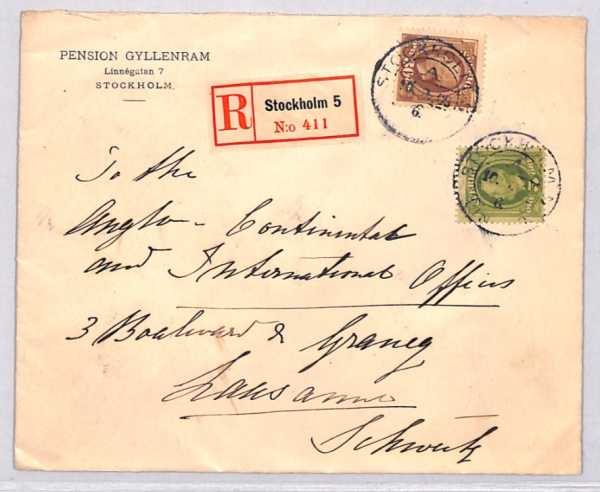 PENSION GYLLENRAM
Linnégatan 7
STOCKHOLM.
R
Stockholm 5
N:o 411
STOCKHOLM
STOCKHOLM
To the
Anglo-Continental
and International Offices
3 Boulevard de Grancy
Lausanne
Schweitz